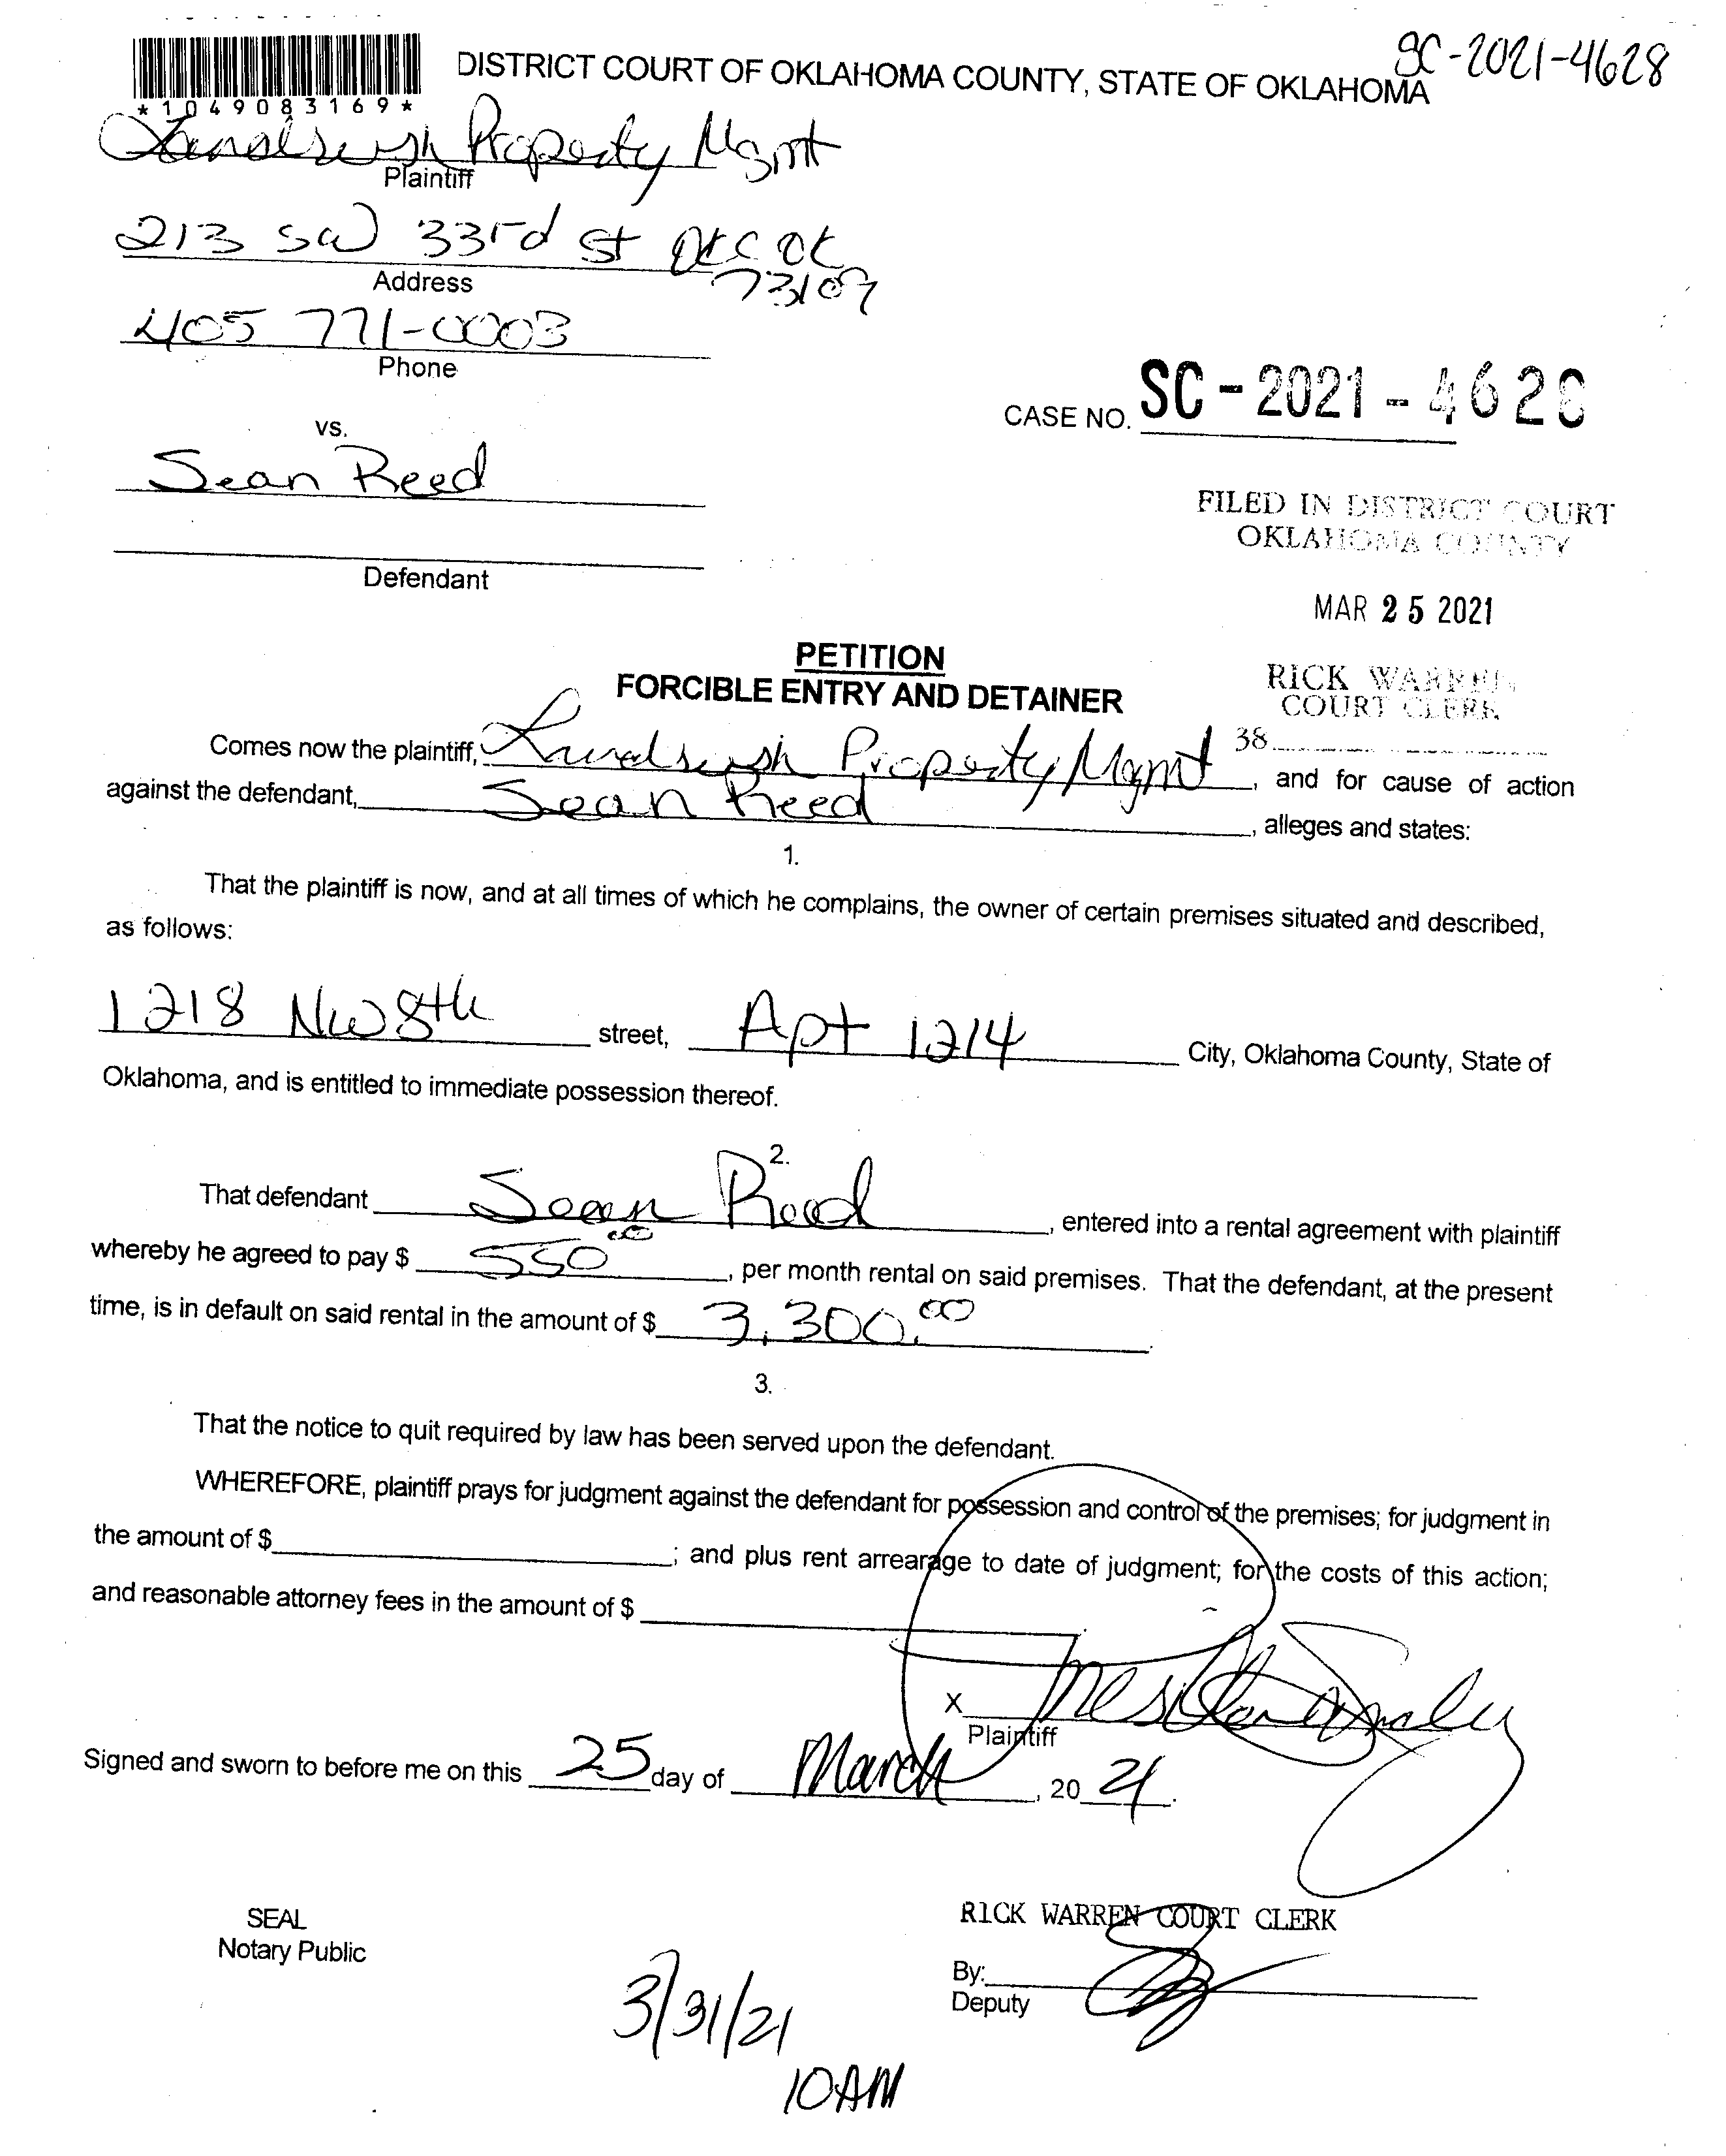 SC-2021-4628
*1049083169*
DISTRICT COURT OF OKLAHOMA COUNTY, STATE OF OKLAHOMA
Property Mgmt
Plaintiff
213 SW 33rd St OKC OK
73109
Address
405 771-0003
Phone
vs.
CASE NO. SC-2021-4628
Sean Reed
Defendant
FILED IN DISTRICT COURT
OKLAHOMA COUNTY
MAR 25 2021
RICK WARREN
COURT CLERK
38
PETITION
FORCIBLE ENTRY AND DETAINER
Comes now the plaintiff, Property Mgmt, and for cause of action
against the defendant, Sean Reed, alleges and states:
1.
That the plaintiff is now, and at all times of which he complains, the owner of certain premises situated and described,
as follows:
1218 NW 8th street, Apt 1214 City, Oklahoma County, State of
Oklahoma, and is entitled to immediate possession thereof.
2.
That defendant Sean Reed, entered into a rental agreement with plaintiff
whereby he agreed to pay $ 550.00, per month rental on said premises. That the defendant, at the present
time, is in default on said rental in the amount of $ 3,300.00.
3.
That the notice to quit required by law has been served upon the defendant.
WHEREFORE, plaintiff prays for judgment against the defendant for possession and control of the premises; for judgment in
the amount of $; and plus rent arrearage to date of judgment; for the costs of this action;
and reasonable attorney fees in the amount of $
X
Plaintiff
Signed and sworn to before me on this 25 day of March, 20 21.
SEAL
Notary Public
RICK WARREN COURT CLERK
By:
Deputy
3/31/21
10AM